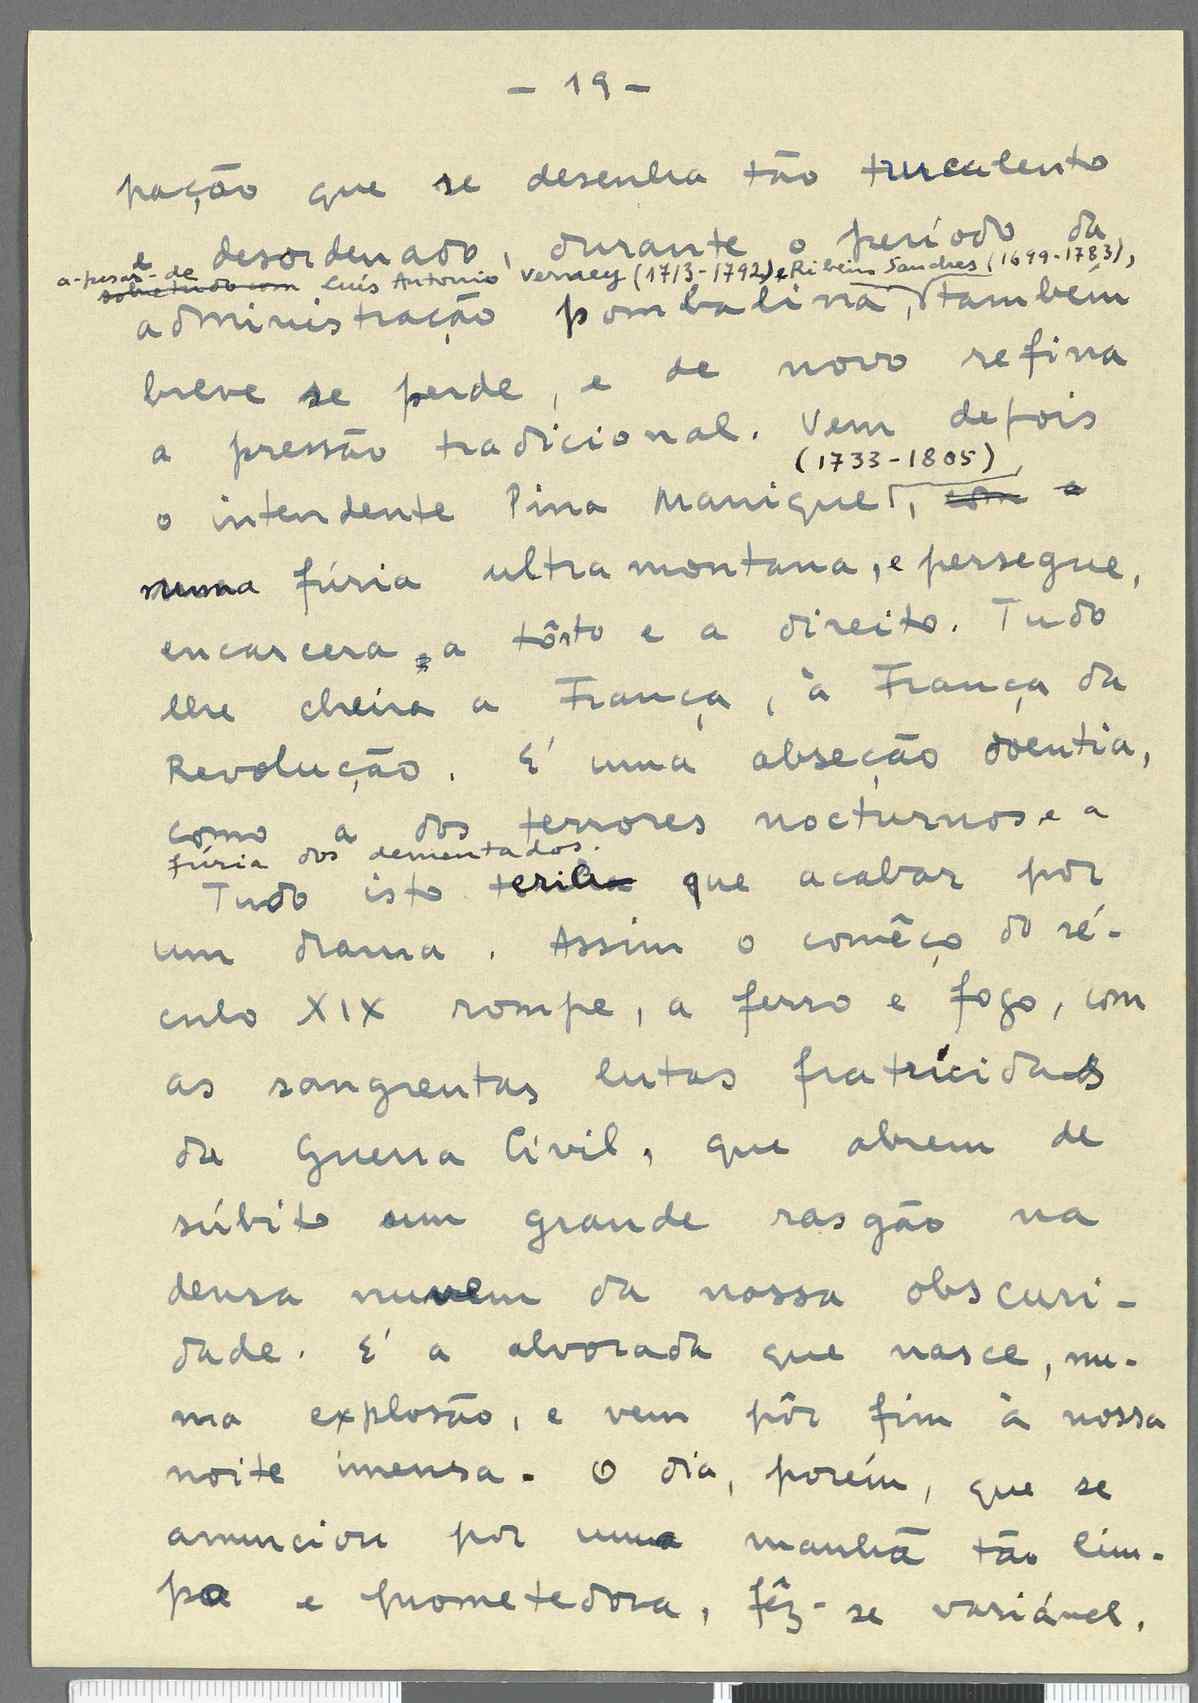 - 19 -
pação que se desenha tão truculento
e desordenado, durante o período da
a-pesar-de Luís Antonio Verney (1713-1792) e Ribeiro Sanches (1699-1783),
sobretudo com
administração pombalina, também
breve se perde, e de novo refina
a pressão tradicional. Vem depois
(1733-1805)
o intendente Pina Manique, com a
numa fúria ultramontana, e persegue,
encarcera a tôrto e a direito. Tudo
lhe cheira a França, à França da
Revolução. É uma obseção doentia,
como a dos terrores nocturnos e a
fúria dos dementados.
Tudo isto teria que acabar por
um drama. Assim o comêço do sé-
culo XIX rompe, a ferro e fogo, com
as sangrentas lutas fratricidas
da Guerra Civil, que abrem de
súbito um grande rasgão na
densa nuvem da nossa obscuri-
dade. É a alvorada que nasce, nu-
ma explosão, e vem pôr fim à nossa
noite imensa. O dia, porém, que se
anunciou por uma manhã tão lim-
pa e prometedora, fêz-se variável.